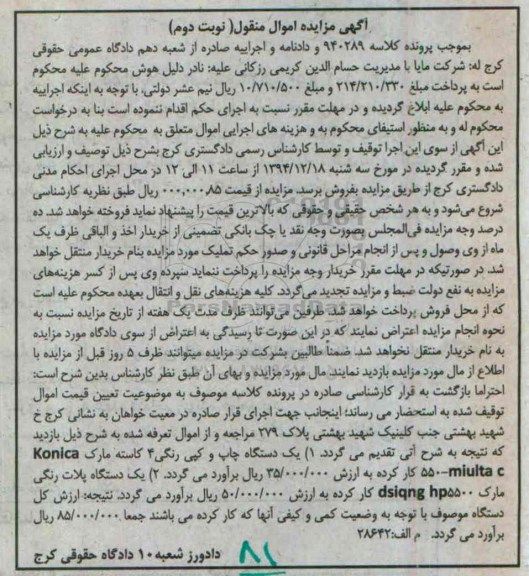 آگهی مزایده اموال منقول( نوبت دوم)
بموجب پرونده کلاسه ۹۴۰۲۸۹ و دادنامه و اجراییه صادره از شعبه دهم دادگاه عمومی حقوقی
کرج له: شرکت مایا با مدیریت حسام الدین کریمی رزکانی علیه: نادر دلیل هوش محکوم علیه محکوم
است به پرداخت مبلغ ۲۱۴/۲۱۰/۳۳۰ و مبلغ ۱۰/۷۱۰/۵۰۰ ریال نیم عشر دولتی، با توجه به اینکه اجراییه
به محکوم علیه ابلاغ گردیده و در مهلت مقرر نسبت به اجرای حکم اقدام ننموده است بنا به درخواست
محکوم له و به منظور استیفای محکوم به و هزینه های اجرایی اموال متعلق به محکوم علیه به شرح ذیل
این آگهی از سوی این اجرا توقیف و توسط کارشناس رسمی دادگستری کرج بشرح ذیل توصیف و ارزیابی
شده و مقرر گردیده در مورخ سه شنبه ۱۳۹۴/۱۲/۱۸ از ساعت ۱۱ الی ۱۲ در محل اجرای احکام مدنی
دادگستری کرج از طریق مزایده بفروش برسد. مزایده از قیمت ۰۰۰,۰۰۰,۸۵ ریال طبق نظریه کارشناسی
شروع می‌شود و به هر شخص حقیقی و حقوقی که بالاترین قیمت را پیشنهاد نماید فروخته خواهد شد. ده
درصد وجه مزایده فی‌المجلس بصورت وجه نقد یا چک بانکی تضمینی از خریدار اخذ و الباقی ظرف یک
ماه از وی وصول و پس از انجام مراحل قانونی و صدور حکم تملیک مورد مزایده بنام خریدار منتقل خواهد
شد. در صورتیکه در مهلت مقرر خریدار وجه مزایده را پرداخت ننماید سپرده وی پس از کسر هزینه‌های
مزایده به نفع دولت ضبط و مزایده تجدید می‌گردد. کلیه هزینه‌های نقل و انتقال بعهده محکوم علیه است
که از محل فروش پرداخت خواهد شد. طرفین می‌توانند ظرف مدت یک هفته از تاریخ مزایده نسبت به
نحوه انجام مزایده اعتراض نمایند که در این صورت تا رسیدگی به اعتراض از سوی دادگاه مورد مزایده
به نام خریدار منتقل نخواهد شد. ضمناً طالبین بشرکت در مزایده میتوانند ظرف ۵ روز قبل از مزایده با
اطلاع از مال مورد مزایده بازدید نمایند. مال مورد مزایده و بهای آن طبق نظر کارشناس بدین شرح است:
احتراما بازگشت به قرار کارشناسی صادره در پرونده کلاسه موصوف به موضوعیت تعیین قیمت اموال
توقیف شده به استحضار می رساند؛ اینجانب جهت اجرای قرار صادره در معیت خواهان به نشانی کرج خ
شهید بهشتی جنب کلینیک شهید بهشتی پلاک ۲۷۹ مراجعه و از اموال تعرفه شده به شرح ذیل بازدید
که نتیجه به شرح آتی تقدیم می گردد. ۱) یک دستگاه چاپ و کپی رنگی۴ کاسته مارک Konica
miulta c-۵۵۰ کار کرده به ارزش ۳۵/۰۰۰/۰۰۰ ریال برآورد می گردد. ۲) یک دستگاه پلات رنگی
مارک dsiqng hp۵۵۰۰ کار کرده به ارزش ۵۰/۰۰۰/۰۰۰ ریال برآورد می گردد. نتیجه: ارزش کل
دستگاه موصوف با توجه به وضعیت کمی و کیفی آنها که کار کرده می باشند جمعا ۸۵/۰۰۰/۰۰۰ ریال
برآورد می گردد. م الف:۲۸۶۴۲
دادورز شعبه۱۰ دادگاه حقوقی کرج
۸۱